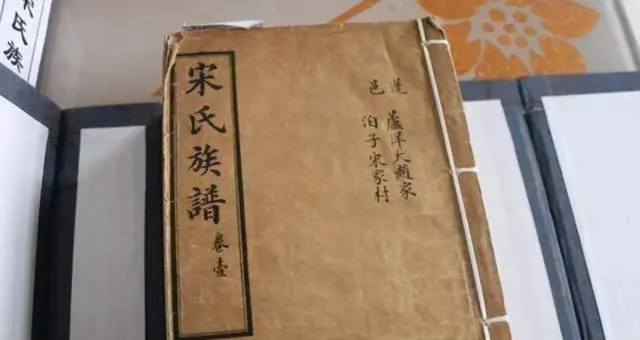 蓬 蘆洋大趙家
邑 泊子宋家村
宋氏族譜 卷壹
氏族